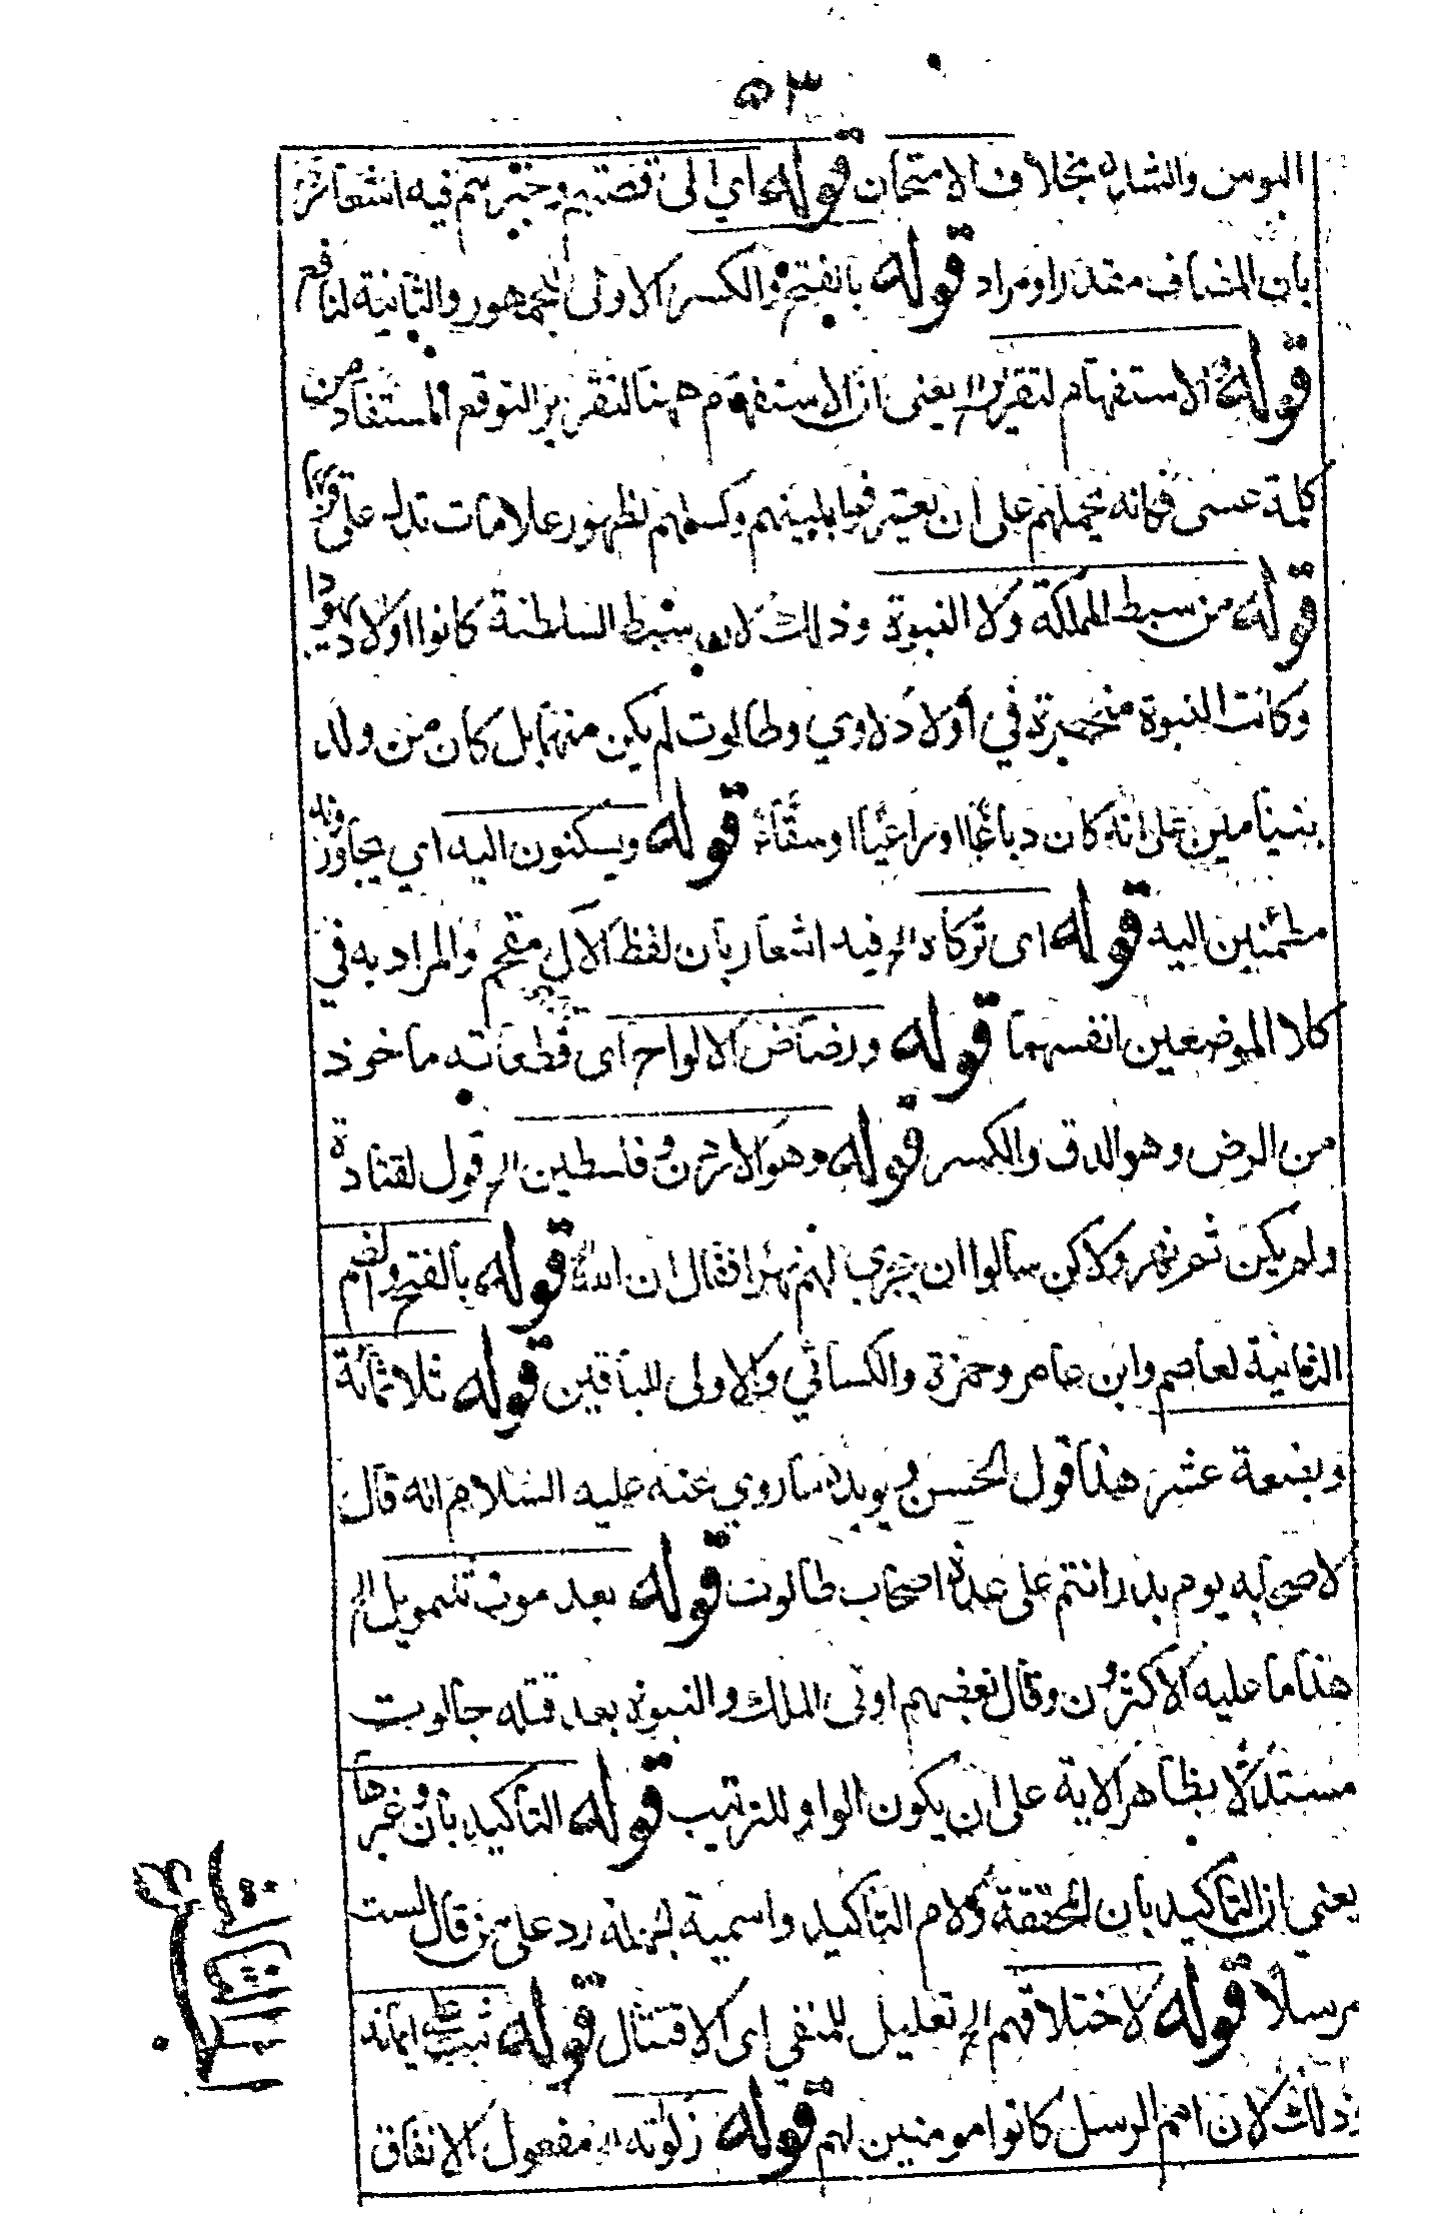 ٥٣
البوس والشدة بخلاف الامتحان قوله اي الى قصتهم وخبرهم فيه اشعار
بان المضاف مقدر او مراد قوله بالفتح والكسر الاولى للجمهور والثانية لنافع
قوله الاستفهام لتقرير الخ يعني ان الاستفهام ههنا لتقرير التوقع المستفاد من
كلمة عسى فكانه يحملهم على ان لظهور علامات تدل على
قوله من سبط المملكة ولا النبوة وذلك لان سبط السلطنة كانوا اولاد يهودا
وكانت النبوة منحصرة في اولاد لاوي وطالوت لم يكن منهما بل كان من ولد
بنيامين على انه كان دباغا او راعيا او سقاء قوله ويسكنون اليه اي
مطمئنين اليه قوله اى تركاه الخ فيه اشعار بان لفظ الال مقحم والمراد به في
كلا الموضعين انفسهما قوله ورضاض الالواح اى قطعاته ماخوذ
من الرض وهو الدق والكسر قوله وهو الاردن وفلسطين الخ قول لقتادة
ولم يكن ثم نهر ولاكن سالوا ان يجري لهم نهرا فقال ان الله قوله بالفتح والضم
الثانية لعاصم وابن عامر وحمزة والكسائي والاولى للباقين قوله ثلاثمائة
وبضعة عشر هذا قول الحسن ويويده ما روي عنه عليه السلام انه قال
لاصحابه يوم بدر انتم على عدة اصحاب طالوت قوله بعد موت شمويل الخ
هذا ما عليه الاكثرون وقال بعضهم اوتى الملك والنبوة بعد قتله جالوت
مستدلا بظاهر الاية على ان يكون الواو للترتيب قوله التاكيد بان وغيرها
يعني ان التاكيد بان المحققة ولام التاكيد واسمية الجملة رد على من قال لست
مرسلا قوله لاختلافهم الخ تعليل للمنفي اى الاقتتال قوله ثبت على ايمانه
وذلك لان امم الرسل كانوا مومنين لهم قوله زكوته الخ مفعول الانفاق
الجزء الثالث